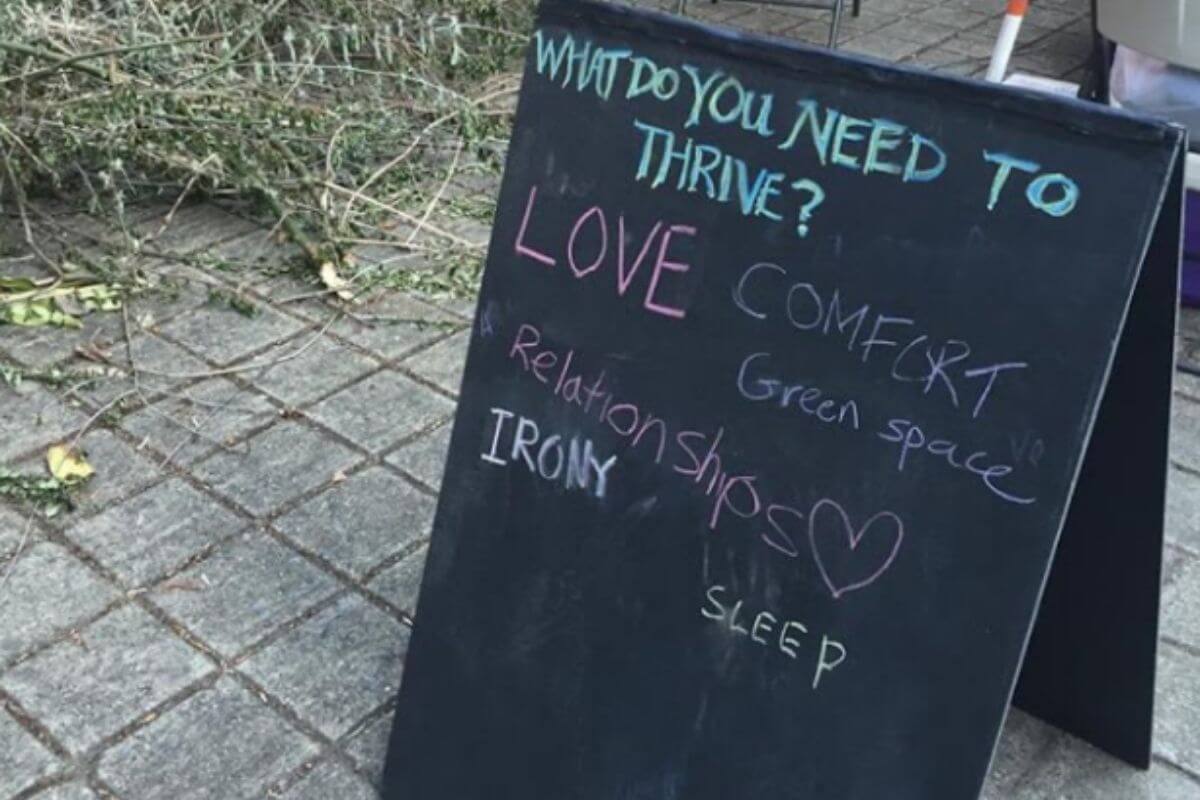 WHAT DO YOU NEED TO
THRIVE?
LOVE
COMFORT
Relationships
Green space
IRONY
SLEEP